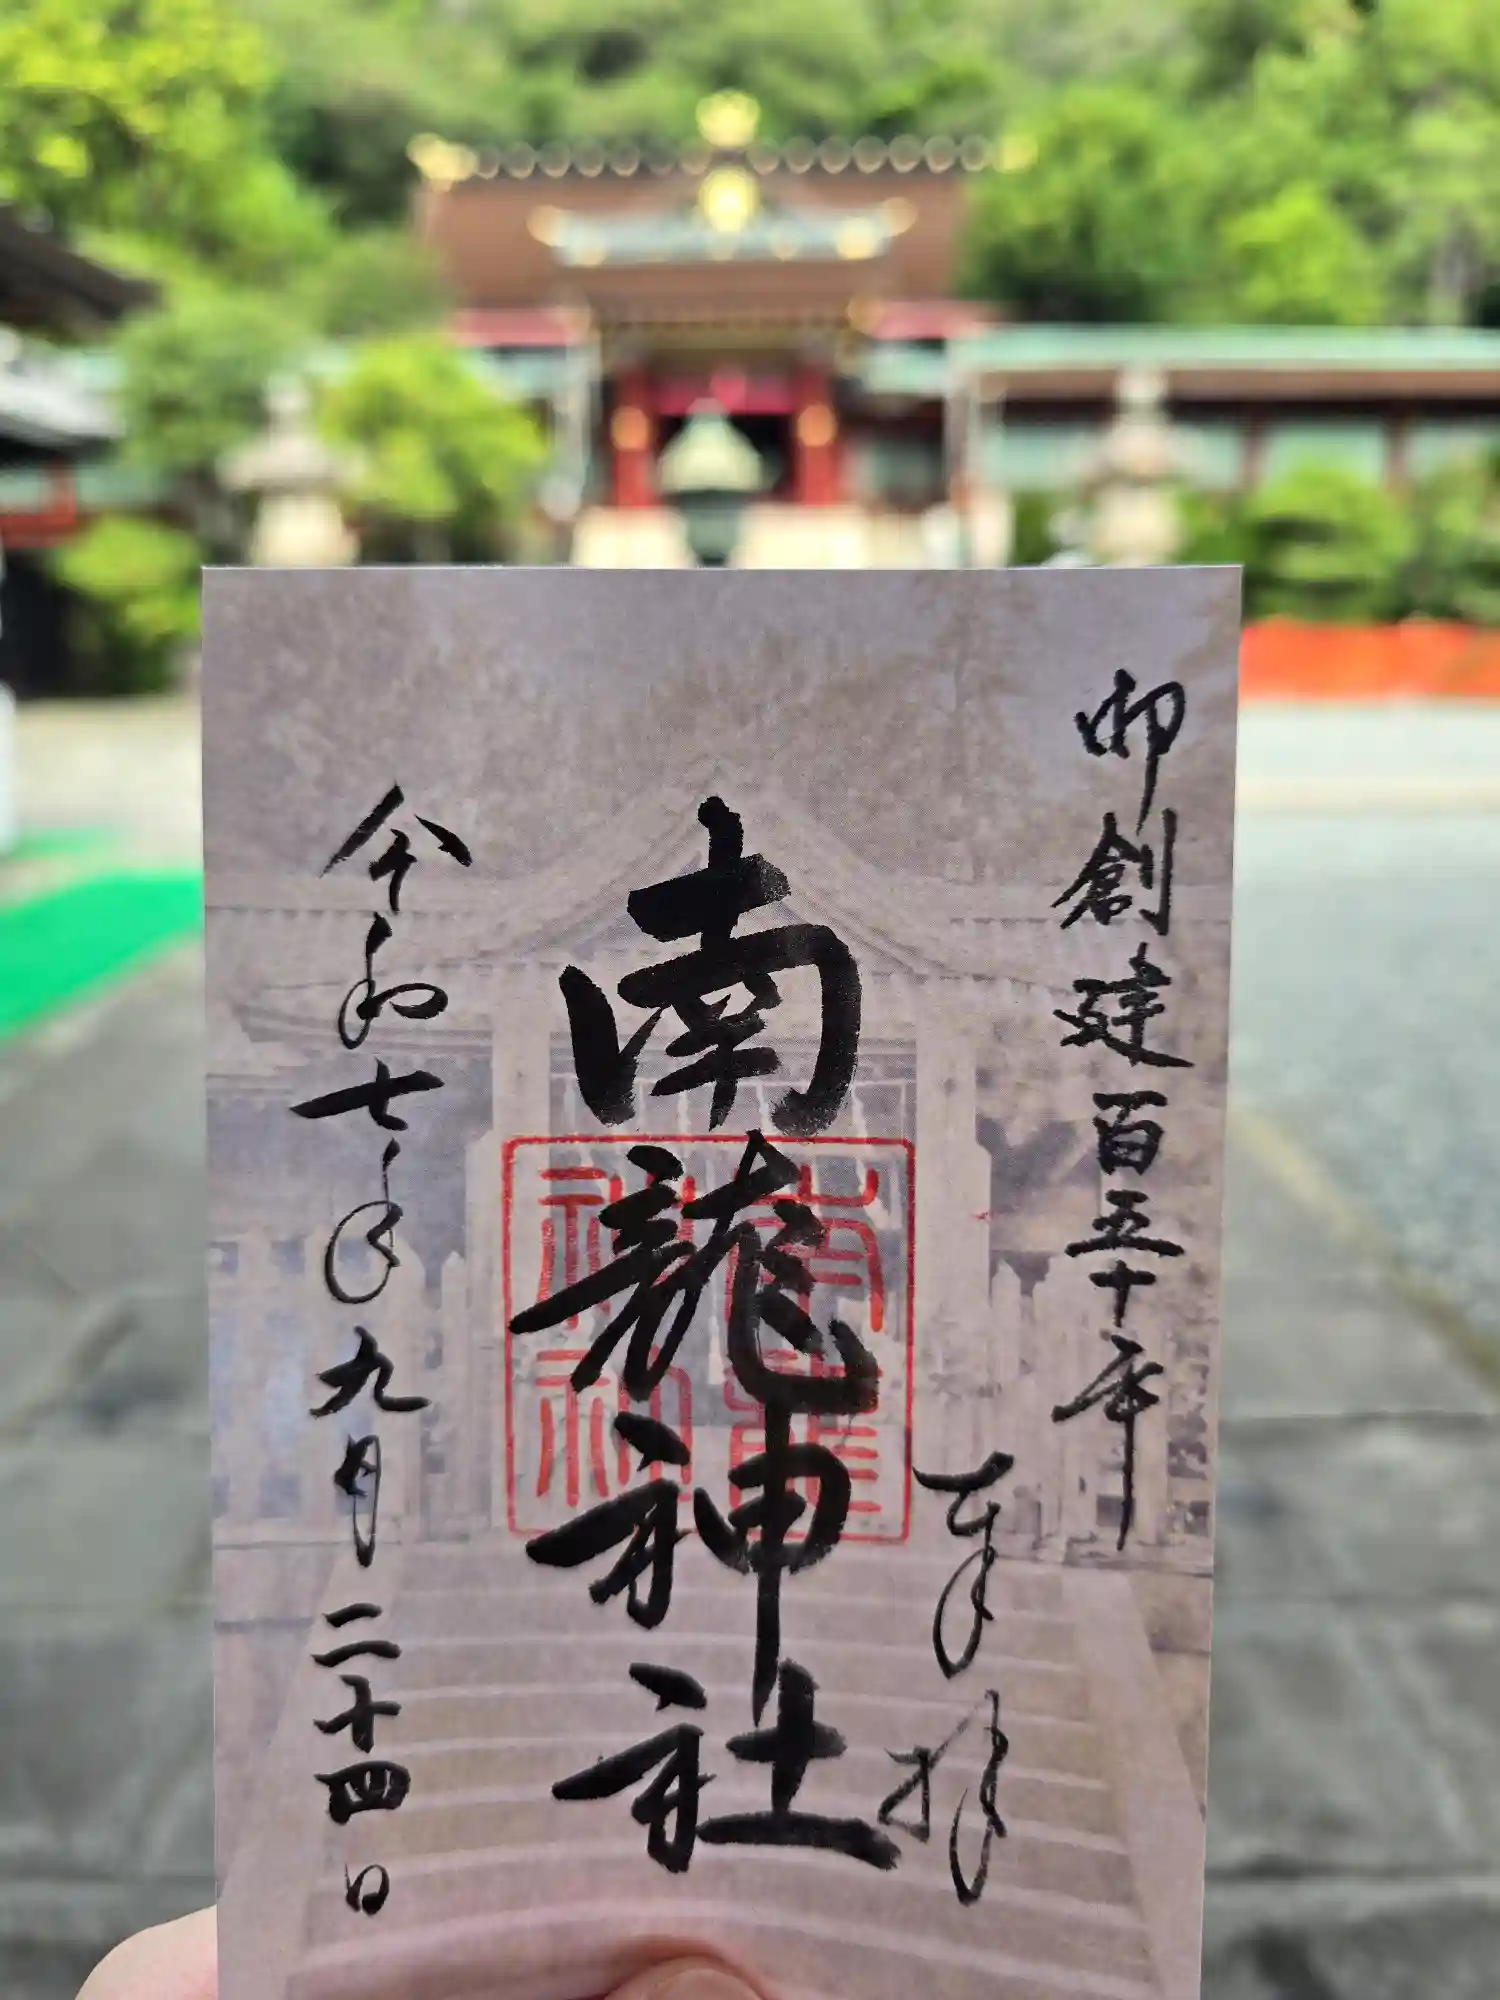 御創建百五十年
奉拝
南龍神社
令和七年九月二十四日
南龍
神社